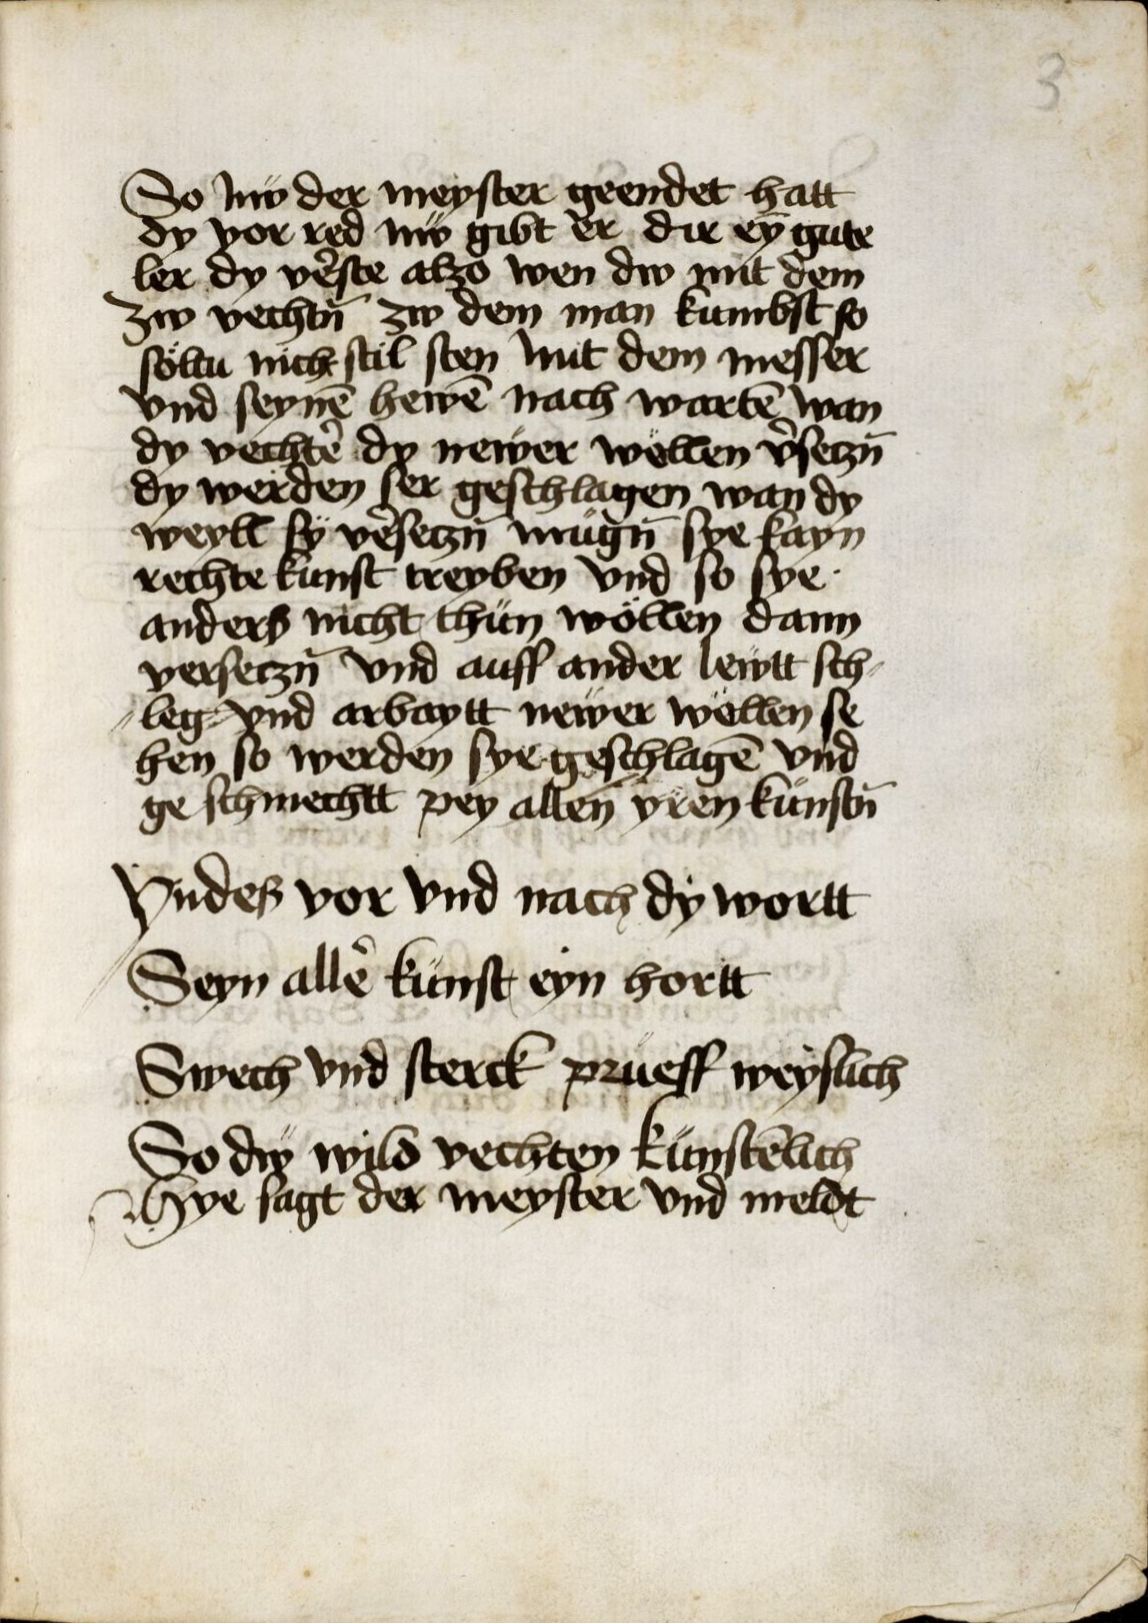 3
So nẅ der meyster geendet hatt
dy vor red nẅ gibt er dir eȳ gute
ler dy v̉ste also wen dw mit dem
zw vechtn̄ zw dem man kumbst so
söltu nicht stil sten mit dem messer
vnd seynē hewē nach wartē wan
dy vechtẻ dy newer wöllen v̉seczn̄
dy werden ser geschlagen wan dy
weyll sÿ v̉seczn̄ mügn̄ sye kayn
rechte kunst treyben vnd so sye
anders nicht thün wöllen dann
verseczn̄ vnd auff ander lewtt sch⸗
⸗leg⸗ vnd arbaytt newer wöllen se
hen so werden sye geschlagē vnd
ge schmechtt pey allen yren künstn̄
Yndeß vor vnd nach dy wortt
Seyn allẻ kunst eyn hortt
Swech vnd sterck prüeff weyslich
So dẅ wild vechten künstēlich
Hye sagt der meyster vnd meldt